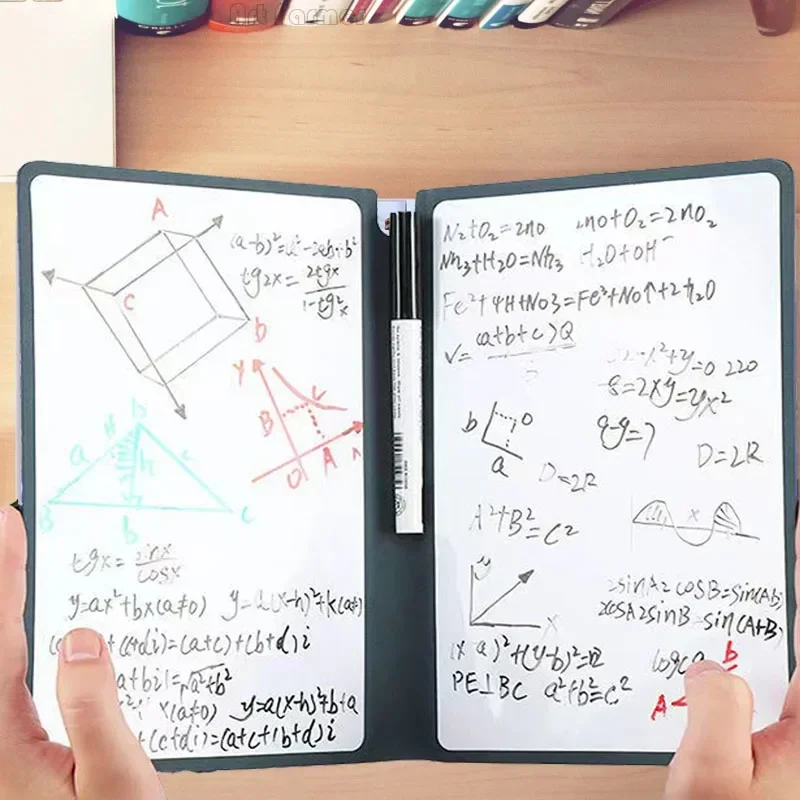 Art Farmer
A
(a-b)²=a²-2ab+b²
tg2x= 2tgx
1-tg²x
C
b
Y
B
C
O
A
a
h
c
b
c
tgx= sinx
cosx
y=ax²+bx(a≠0) y=a(x-h)²+k(a≠
+(c+di)=(a+c)+(b+d)i
a+bi|=√a²+b²
x(a≠0) y=a(x-h)²+b+a
+(c+di)=(a+c+(b+d)i
N₂+O₂=2no 2no+O₂=2nO₂
Nh₃+H₂O=Nh₃ H₂O+OH⁻
Fe²+4H+No3=Fe³+No↑+2H₂O
V= (a+b+c)Q
3
x²+y=0 220
8=2xy=yx²
9-y=7
b
O
a
D=2R
D=2R
A²+B²=C²
x
y
x
2sinA2cosB=sin(Ab)
2cosA2sinB=sin(A+B)
(x a)²+(y-b)²=
logca
b
PE⊥BC a²+b²=c²
A<